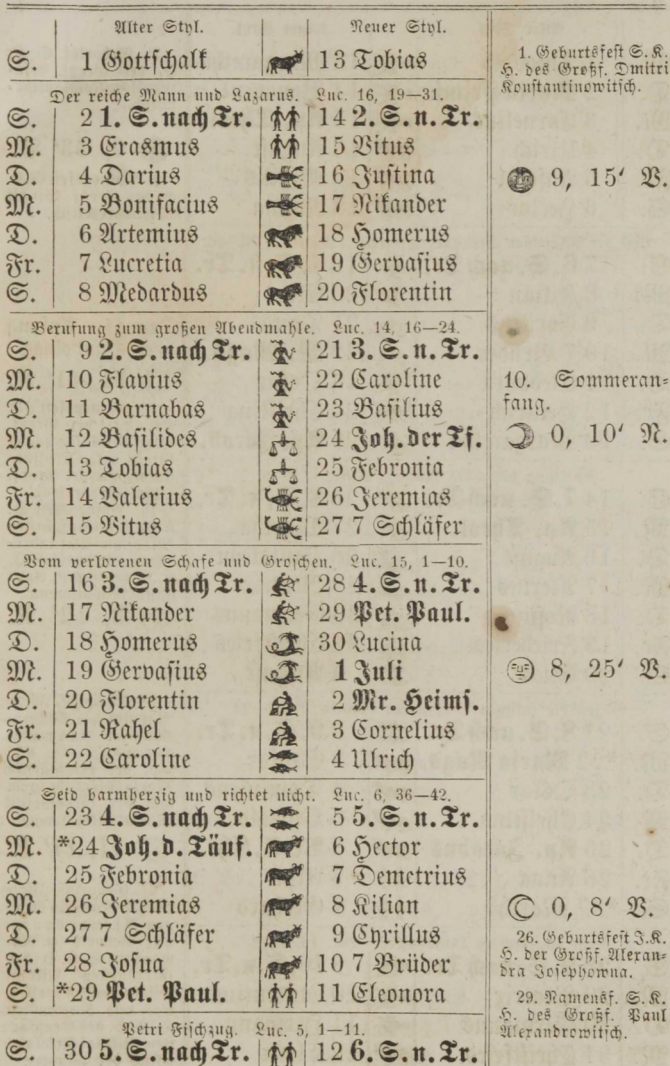 Alter Styl. Neuer Styl.
S. 1 Gottschalk 13 Tobias
1. Geburtsfest S. K.
H. des Großf. Dmitri
Konstantinowitsch.
Der reiche Mann und Lazarus. Luc. 16, 19—31.
S. 2 1. S. nach Tr. 14 2. S. n. Tr.
M. 3 Erasmus 15 Vitus
D. 4 Darius 16 Justina 9, 15′ V.
M. 5 Bonifacius 17 Nikander
D. 6 Artemius 18 Homerus
Fr. 7 Lucretia 19 Gervasius
S. 8 Medardus 20 Florentin
Berufung zum großen Abendmahle. Luc. 14, 16—24.
S. 9 2. S. nach Tr. 21 3. S. n. Tr.
M. 10 Flavius 22 Caroline 10. Sommeran-
D. 11 Barnabas 23 Basilius fang.
M. 12 Basilides 24 Joh. der Tf. 0, 10′ N.
D. 13 Tobias 25 Febronia
Fr. 14 Valerius 26 Jeremias
S. 15 Vitus 27 7 Schläfer
Vom verlorenen Schafe und Groschen. Luc. 15, 1—10.
S. 16 3. S. nach Tr. 28 4. S. n. Tr.
M. 17 Nikander 29 Pet. Paul.
D. 18 Homerus 30 Lucina
M. 19 Gervasius 1 Juli 8, 25′ V.
D. 20 Florentin 2 Mr. Heims.
Fr. 21 Rahel 3 Cornelius
S. 22 Caroline 4 Ulrich
Seid barmherzig und richtet nicht. Luc. 6, 36—42.
S. 23 4. S. nach Tr. 5 5. S. n. Tr.
M. *24 Joh. d. Täuf. 6 Hector
D. 25 Febronia 7 Demetrius
M. 26 Jeremias 8 Kilian 0, 8′ V.
D. 27 7 Schläfer 9 Cyrillus
Fr. 28 Josua 10 7 Brüder
S. *29 Pet. Paul. 11 Eleonora
26. Geburtsfest J. K.
H. der Großf. Alexan-
dra Josephowna.
29. Namensf. S. K.
H. des Großf. Paul
Alexandrowitsch.
Petri Fischzug. Luc. 5, 1—11.
S. 30 5. S. nach Tr. 12 6. S. n. Tr.